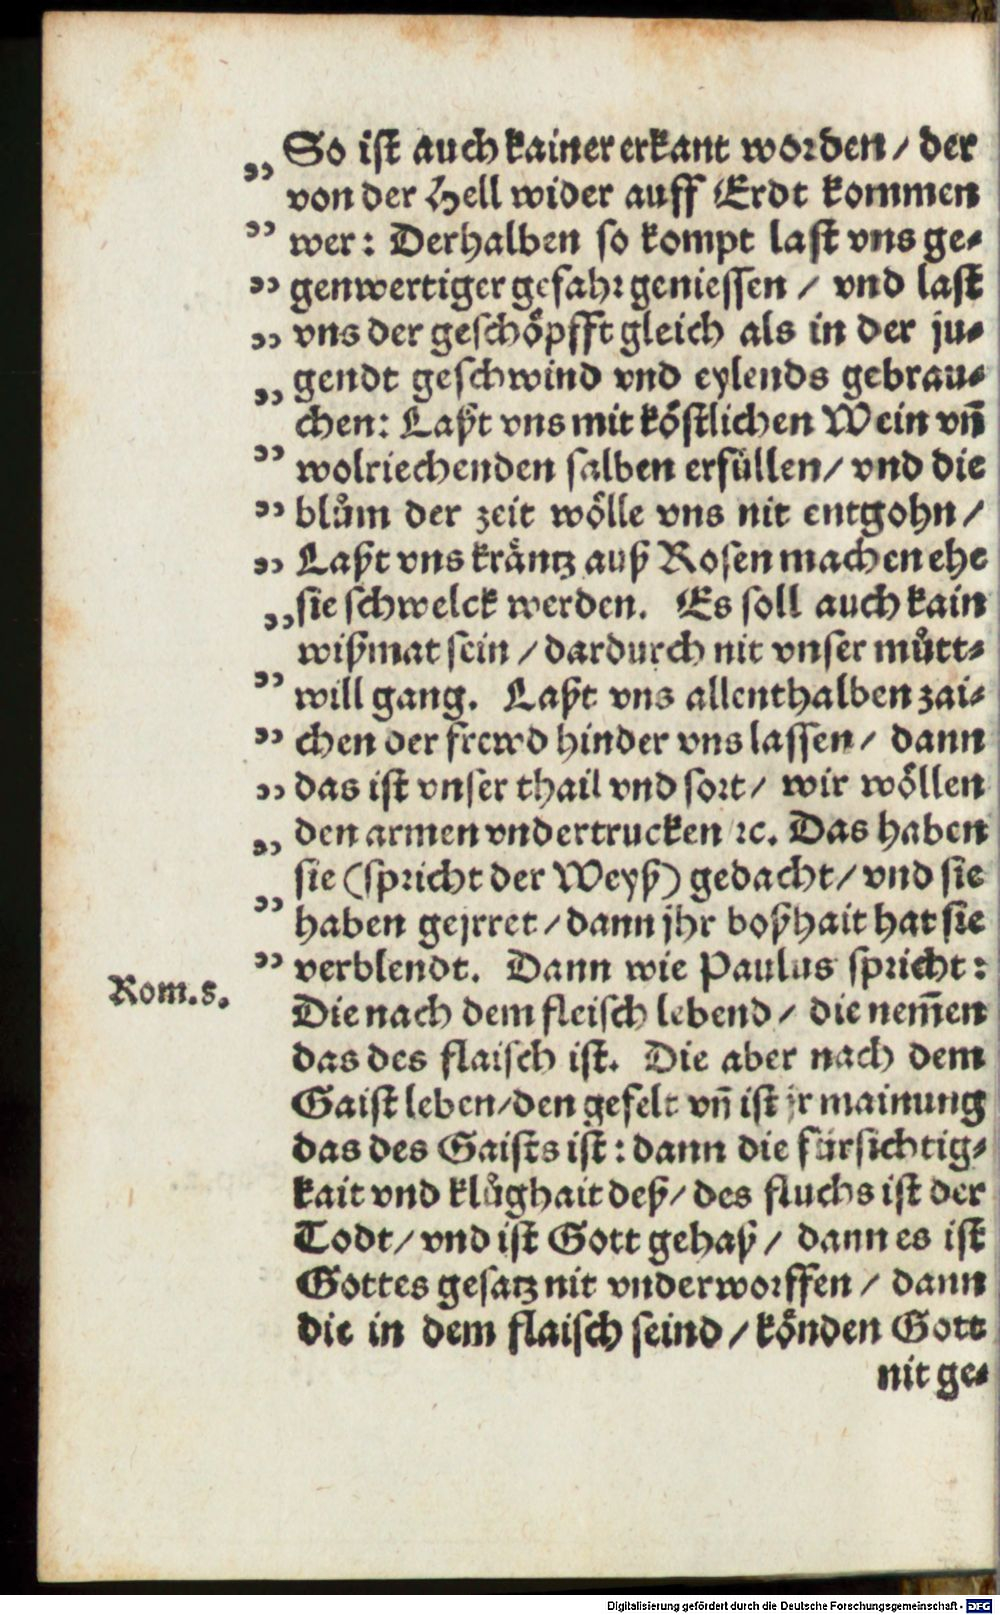 „ So ist auch kainer erkant worden / der
von der Hell wider auff Erdt kommen
„ wer: Derhalben so kompt last vns ge⸗
„ genwertiger gefahr geniessen / vnd last
„ vns der geschöpfft gleich als in der ju⸗
„ gendt geschwind vnd eylends gebrau⸗
chen: Laßt vns mit köstlichen Wein vn̄
„ wolriechenden salben erfüllen / vnd die
„ blům der zeit wölle vns nit entgohn /
„ Laßt vns kräntz auß Rosen machen ehe
„ sie schwelck werden. Es soll auch kain
wißmat sein / dardurch nit vnser můtt⸗
„ will gang. Laßt vns allenthalben zai⸗
„ chen der frewd hinder vns lassen / dann
„ das ist vnser thail vnd sort / wir wöllen
„ den armen vndertrucken ꝛc. Das haben
sie (spricht der Weyß) gedacht / vnd sie
„ haben gejrret / dann jhr boßhait hat sie
„ verblendt. Dann wie Paulus spricht:
Rom.8.
Die nach dem fleisch lebend / die nem̄en
das des flaisch ist. Die aber nach dem
Gaist leben / den gefelt vn̄ ist jr mainung
das des Gaists ist: dann die fürsichtig⸗
kait vnd klůghait deß / des fluchs ist der
Todt / vnd ist Gott gehaß / dann es ist
Gottes gesatz nit vnderworffen / dann
die in dem flaisch seind / könden Gott
nit ge⸗
Digitalisierung gefördert durch die Deutsche Forschungsgemeinschaft - DFG